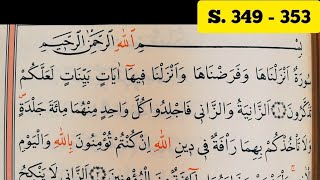 S. 349 - 353
بِسْمِ اللهِ الرَّحْمٰنِ الرَّحِيمِ
سُورَةٌ اَنْزَلْنَاهَا وَفَرَضْنَاهَا وَاَنْزَلْنَا فِيهَٓا اٰيَاتٍ بَيِّنَاتٍ لَعَلَّكُمْ
تَذَكَّرُونَ ١ اَلزَّانِيَةُ وَالزَّانِي فَاجْلِدُوا كُلَّ وَاحِدٍ مِنْهُمَا مِائَةَ جَلْدَةٍ
وَلَا تَأْخُذْكُمْ بِهِمَا رَأْفَةٌ فِي دِينِ اللهِ اِنْ كُنْتُمْ تُؤْمِنُونَ بِاللهِ وَالْيَوْمِ
طَٓائِفَةٌ مِنَ الْمُؤْمِنِينَ ٢ اَلزَّانِي لَا يَنْكِحُ